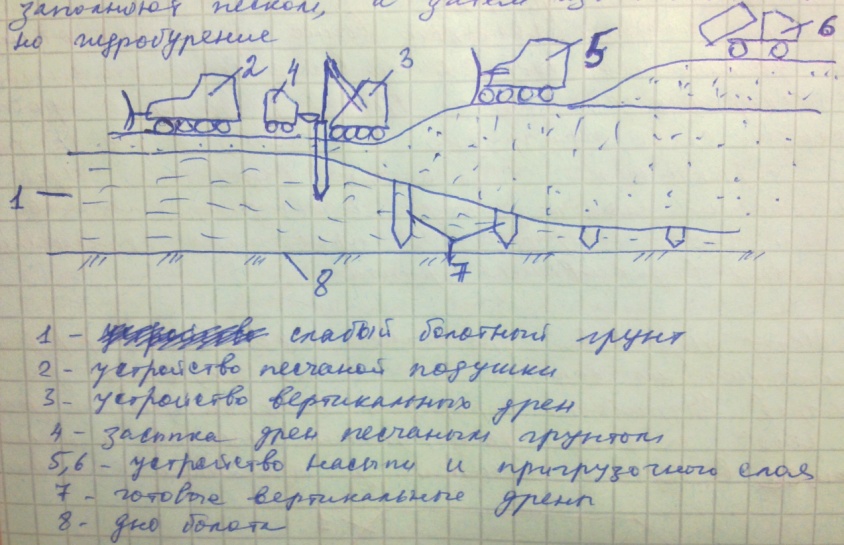 заполняют песком, а затем
но гидробурение
2
4
3
5
6
1
7
8
1 - слабый болотный грунт
2 - устройство песчаной подушки
3 - устройство вертикальных дрен
4 - засыпка дрен песчаным грунтом
5,6 - устройство насыпи и пригрузочного слоя
7 - готовые вертикальные дрены
8 - дно болота